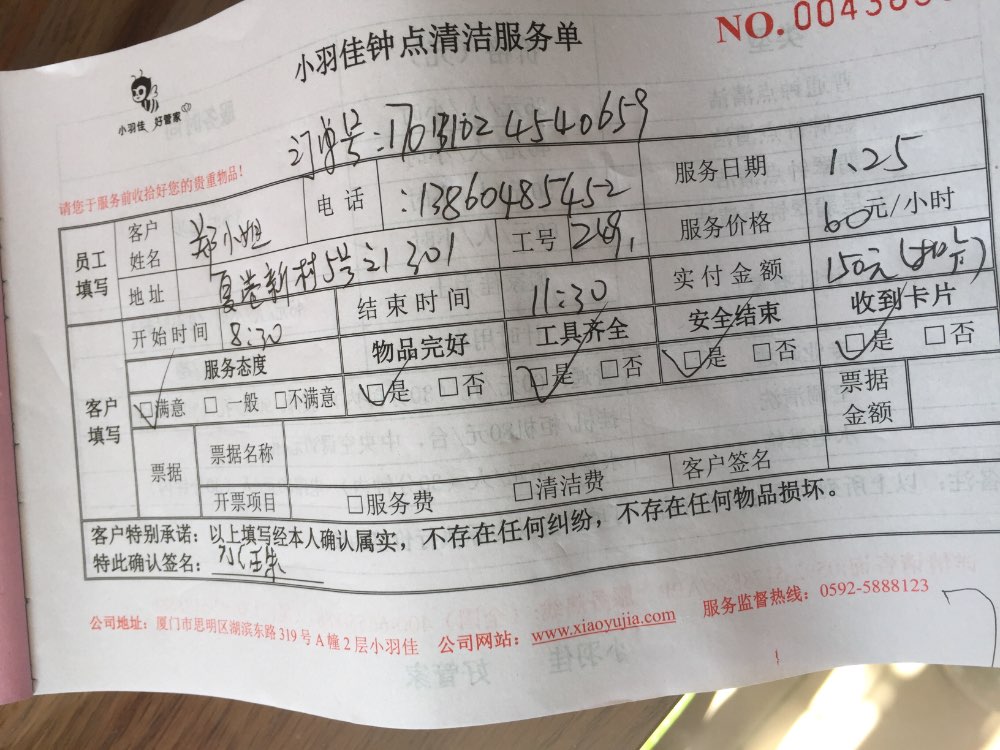 小羽佳钟点清洁服务单
NO.004383
小羽佳 好管家
订单号:17013102454 0659
请您于服务前收拾好您的贵重物品!
员工填写 客户姓名 郑小姐 电话 :13860485452 服务日期 1.25
地址 夏港新村5号之1 301 工号 269 服务价格 60元/小时
开始时间 8:30 结束时间 11:30 实付金额 150元
客户填写 服务态度 物品完好 工具齐全 安全结束 收到卡片
□满意 □一般 □不满意 □是 □否 □是 □否 □是 □否 □是 □否
票据 票据名称 票据金额
开票项目 □服务费 □清洁费 客户签名
客户特别承诺:以上填写经本人确认属实,不存在任何纠纷,不存在任何物品损坏。
特此确认签名:
公司地址:厦门市思明区湖滨东路319号A幢2层小羽佳 公司网站:www.xiaoyujia.com 服务监督热线:0592-5888123